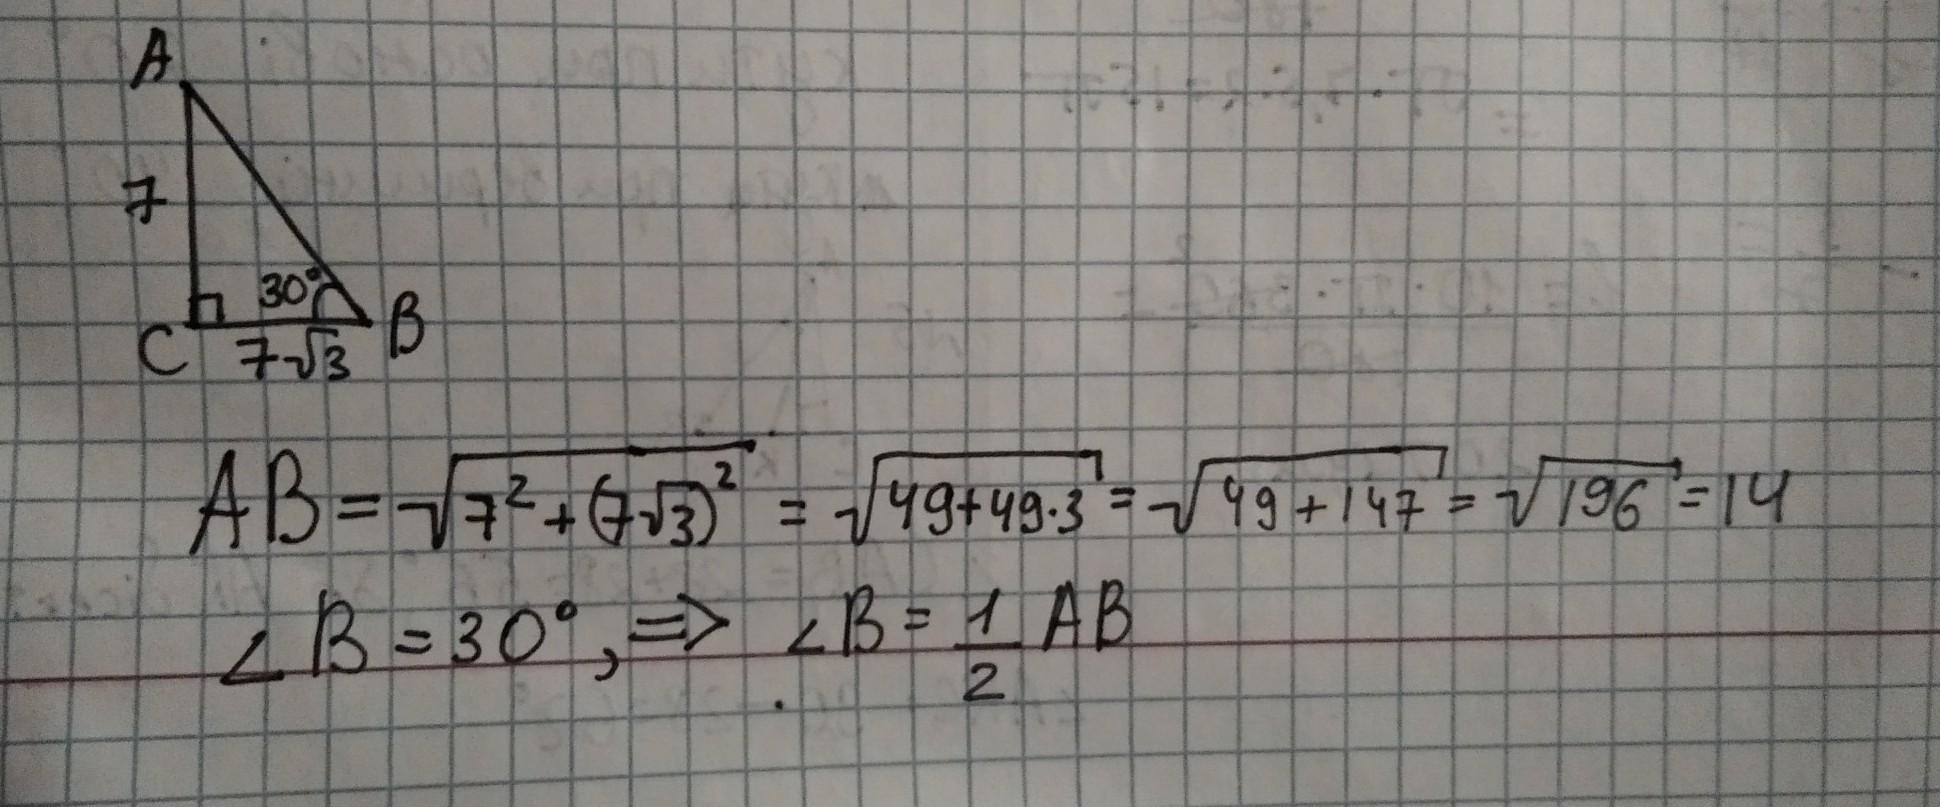 A
7
30°
C
B
7√3
AB = √(7² + (7√3)²) = √(49+49·3) = √(49+147) = √196 = 14
∠B = 30°, => ∠B = 1/2 AB